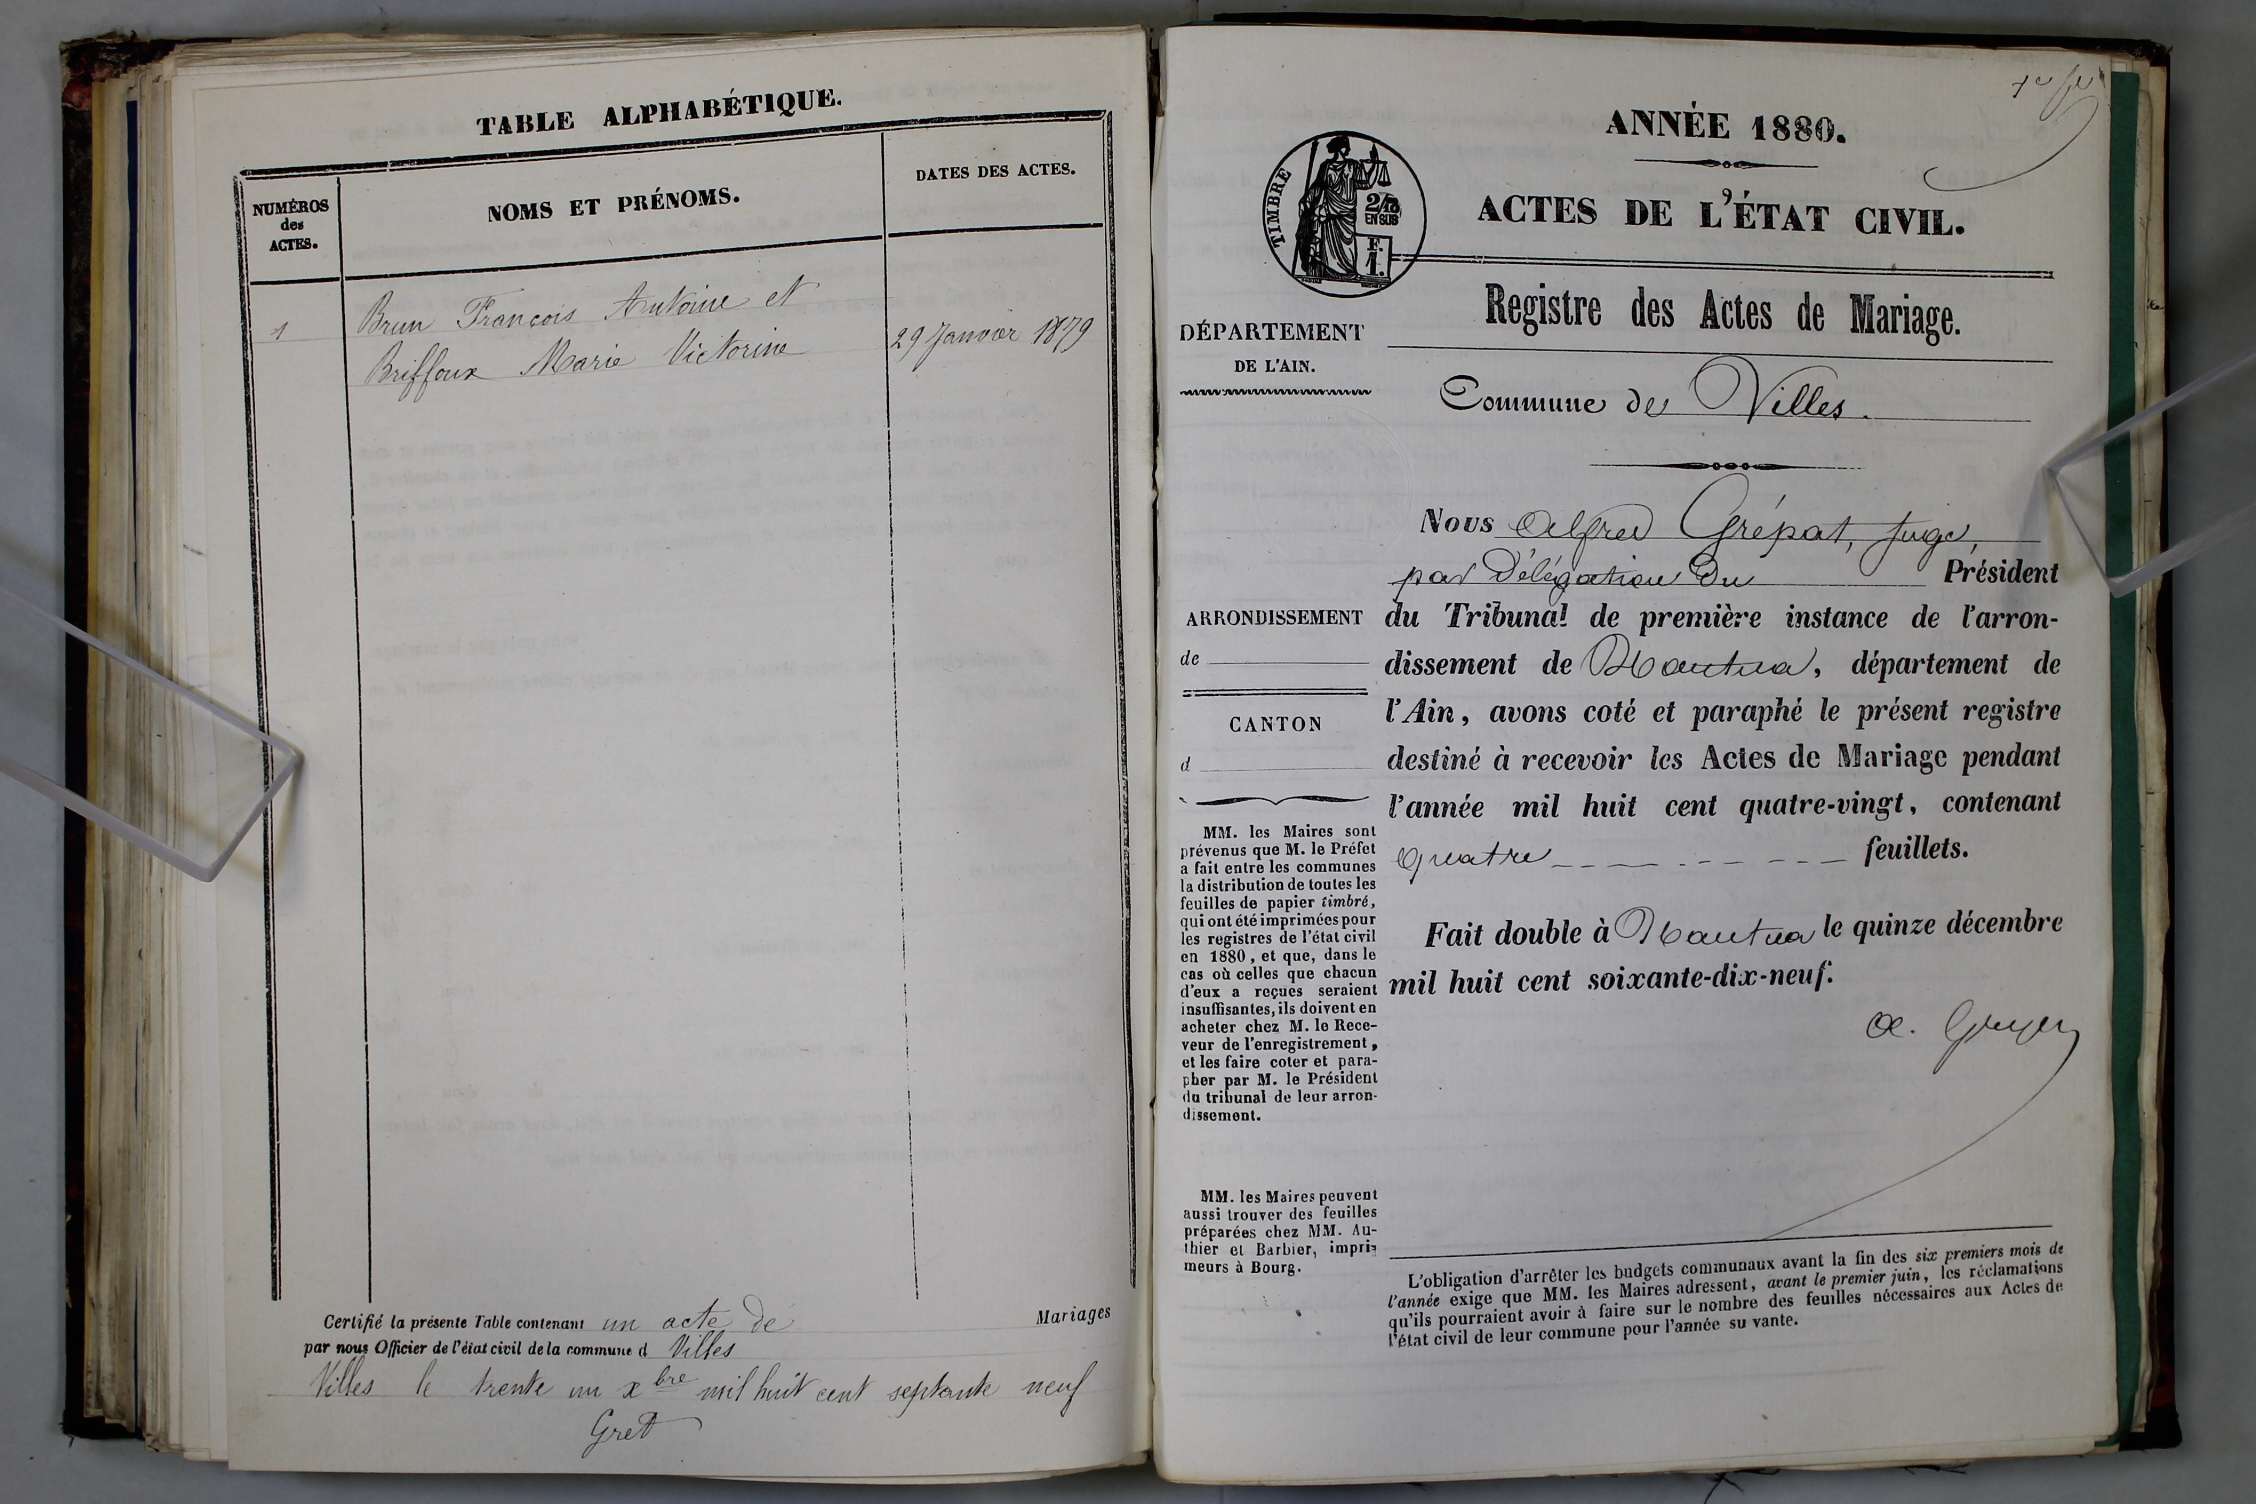 TABLE ALPHABÉTIQUE.
NUMÉROS
des
ACTES.
NOMS ET PRÉNOMS.
DATES DES ACTES.
1
Brun François Antoine et
Briffoux Marie Victorine
29 Janvier 1879
Certifié la présente Table contenant un acte de Mariages
par nous Officier de l'état civil de la commune d Villes
Villes le trente un xbre mil huit cent septante neuf
Gret
ANNÉE 1880.
ACTES DE L'ÉTAT CIVIL.
TIMBRE
2/10
EN SUS
F.
1.
Registre des Actes de Mariage.
DÉPARTEMENT
DE L'AIN.
Commune de Villes.
Nous Alfred Grépat, juge,
par délégation du Président
du Tribunal de première instance de l'arron-
dissement de Nantua, département de
l'Ain, avons coté et paraphé le présent registre
destiné à recevoir les Actes de Mariage pendant
l'année mil huit cent quatre-vingt, contenant
quatre feuillets.
Fait double à Nantua le quinze décembre
mil huit cent soixante-dix-neuf.
ARRONDISSEMENT
de
CANTON
d
MM. les Maires sont
prévenus que M. le Préfet
a fait entre les communes
la distribution de toutes les
feuilles de papier timbré,
qui ont été imprimées pour
les registres de l'état civil
en 1880, et que, dans le
cas où celles que chacun
d'eux a reçues seraient
insuffisantes, ils doivent en
acheter chez M. le Rece-
veur de l'enregistrement,
et les faire coter et para-
pher par M. le Président
du tribunal de leur arron-
dissement.
MM. les Maires peuvent
aussi trouver des feuilles
préparées chez MM. Au-
thier et Barbier, impri-
meurs à Bourg.
L'obligation d'arrêter les budgets communaux avant la fin des six premiers mois de
l'année exige que MM. les Maires adressent, avant le premier juin, les réclamations
qu'ils pourraient avoir à faire sur le nombre des feuilles nécessaires aux Actes de
l'état civil de leur commune pour l'année su vante.